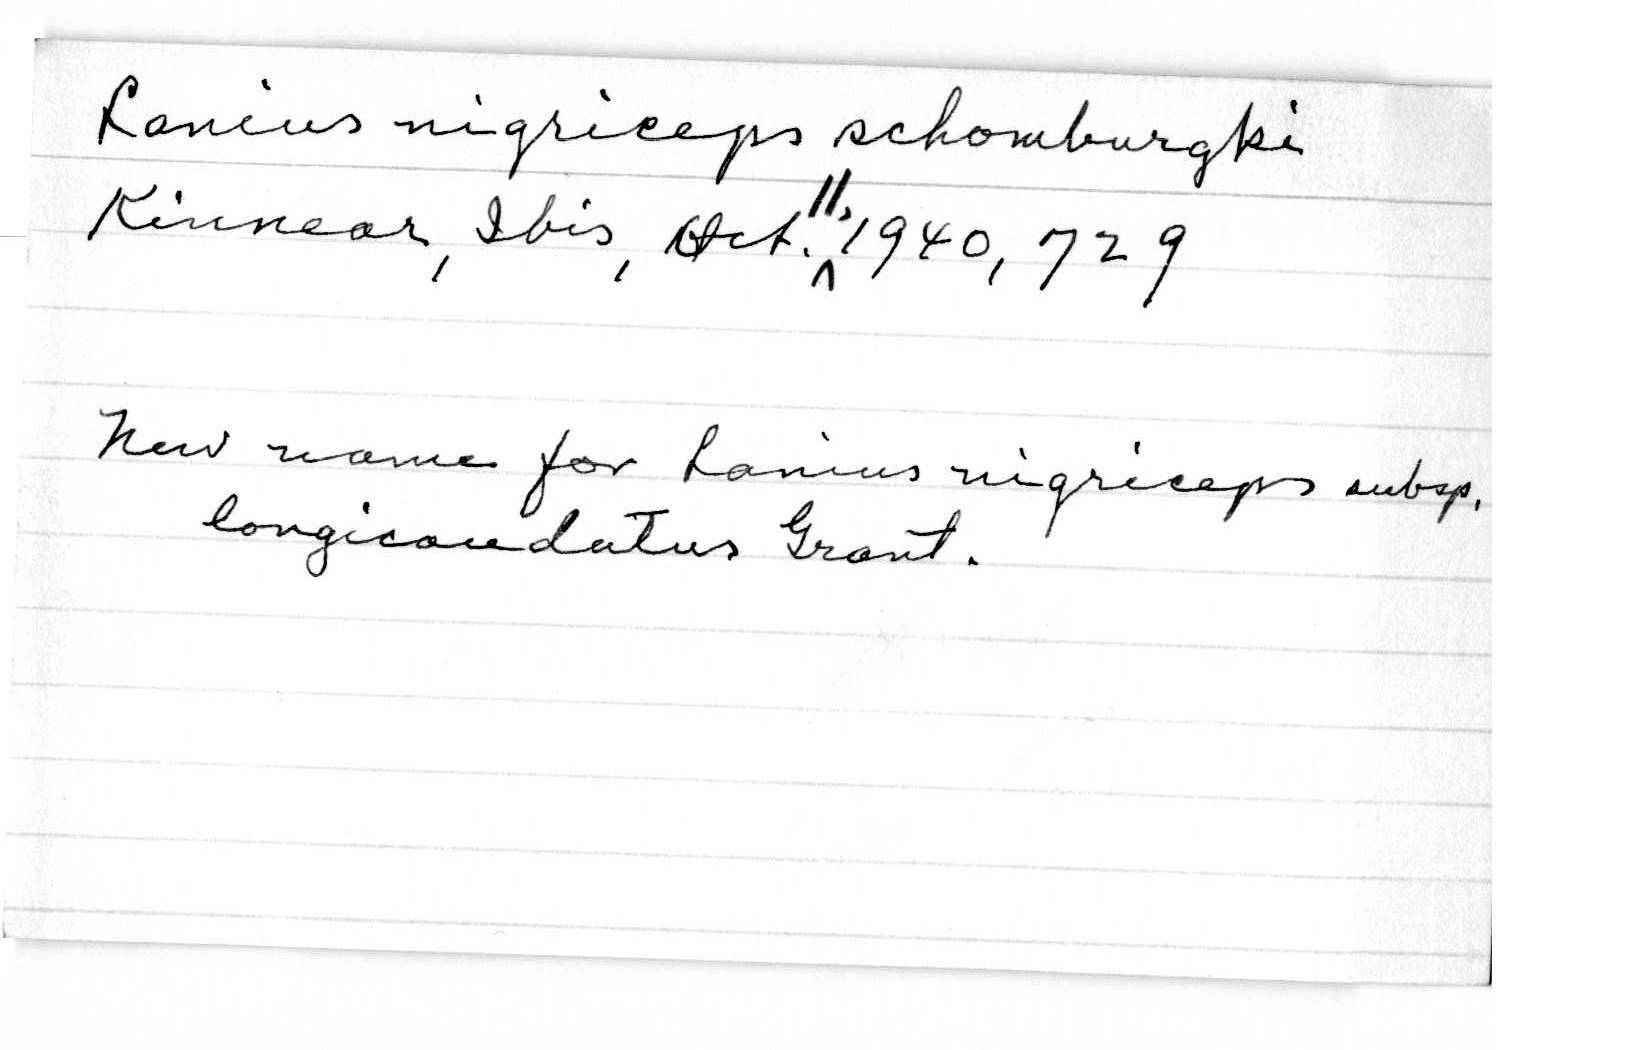 Lanius nigriceps schomburgki
Kinnear, Ibis, Oct. 11, 1940, 729
New name for Lanius nigriceps subsp.
longicaudatus Grant.